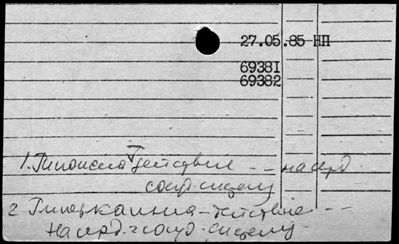 27.05.85 НП
69381
69382
1. Гипоксия действие -- на серд.
сосуд. систему
2 Гиперкапния - действие --
на серд.-сосуд. систему